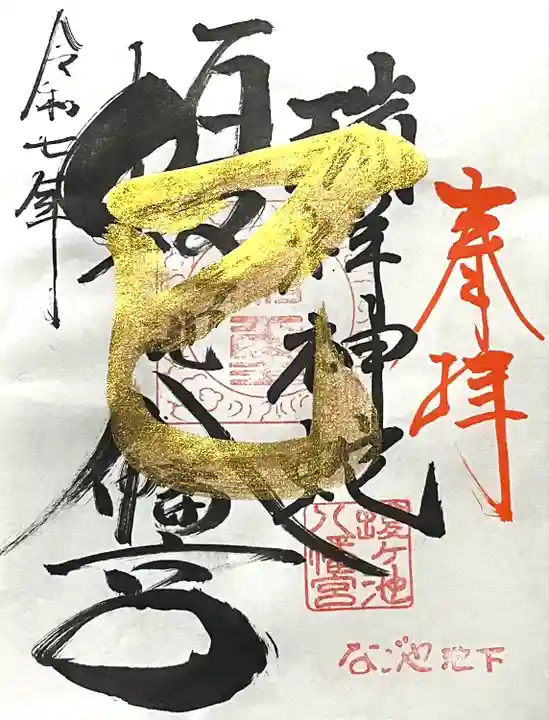 奉拝
瑞祥神
蝮ヶ池八幡宮
巳
令和七年
蝮ヶ池
八幡宮
なごや池下